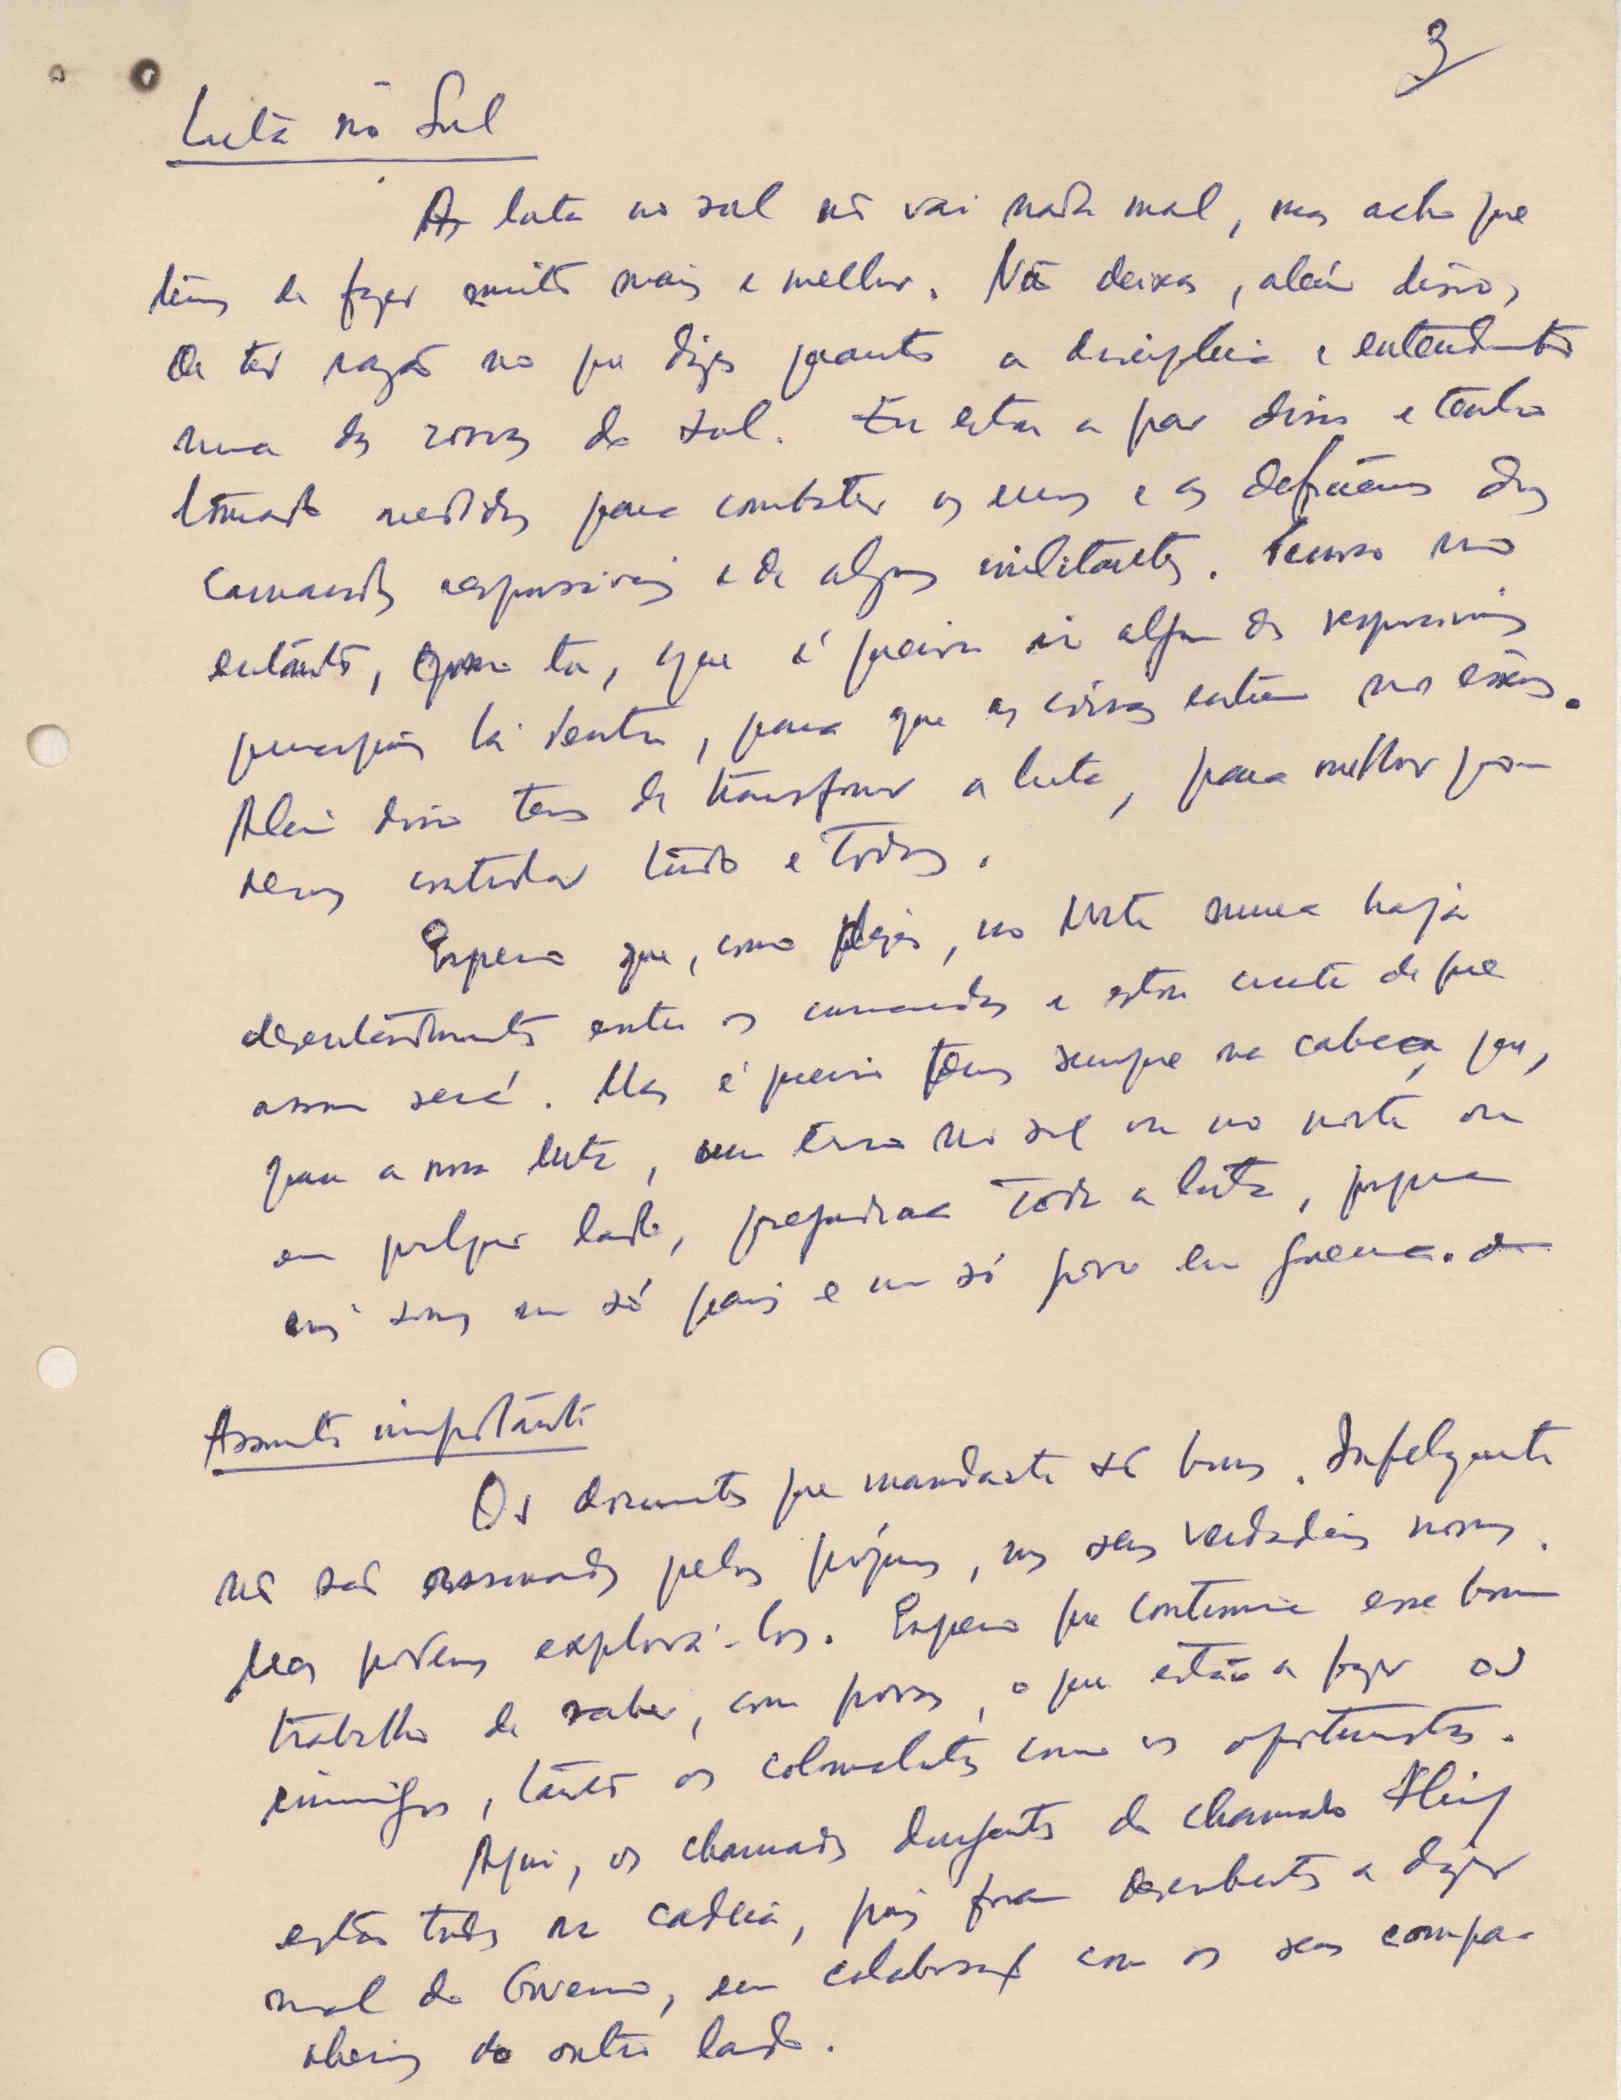 3
Luta no Sul
A luta no sul não vai nada mal, mas acho que
temos de fazer muito mais e melhor. Não deixas, além disso,
de ter razão no que dizes quanto a disciplina e entendimento
numa das zonas do sul. Eu estou a par disso e tenho
tomado medidas para combater os erros e as deficiências dos
camaradas responsáveis e de alguns militantes. Penso no
entanto, como tu, que é preciso ir algum dos responsáveis
principais lá dentro, para que as coisas entrem nos eixos.
Além disso temos de transformar a luta, para melhor po-
dermos controlar tudo e todos.
Espero que, como dizes, no Norte nunca haja
desentendimentos entre os camaradas e estou certo de que
assim será. Mas é preciso termos sempre na cabeça que,
para a nossa luta, um erro no sul ou no norte ou
em qualquer lado, prejudica toda a luta, porque
nós somos um só país e um só povo em guerra.
Assunto importante
Os documentos que mandaste são bons. Infelizmente
não são assinados pelos próprios, nos seus verdadeiros nomes.
Mas podemos explorá-los. Espero que continue esse bom
trabalho de saber, com provas, o que estão a fazer os
inimigos, tanto os colonialistas como os oportunistas.
Aqui, os chamados dirigentes da chamada
estão todos na cadeia, pois foram descobertos a dizer
mal do Governo, em colaboração com os seus compa-
nheiros do outro lado.